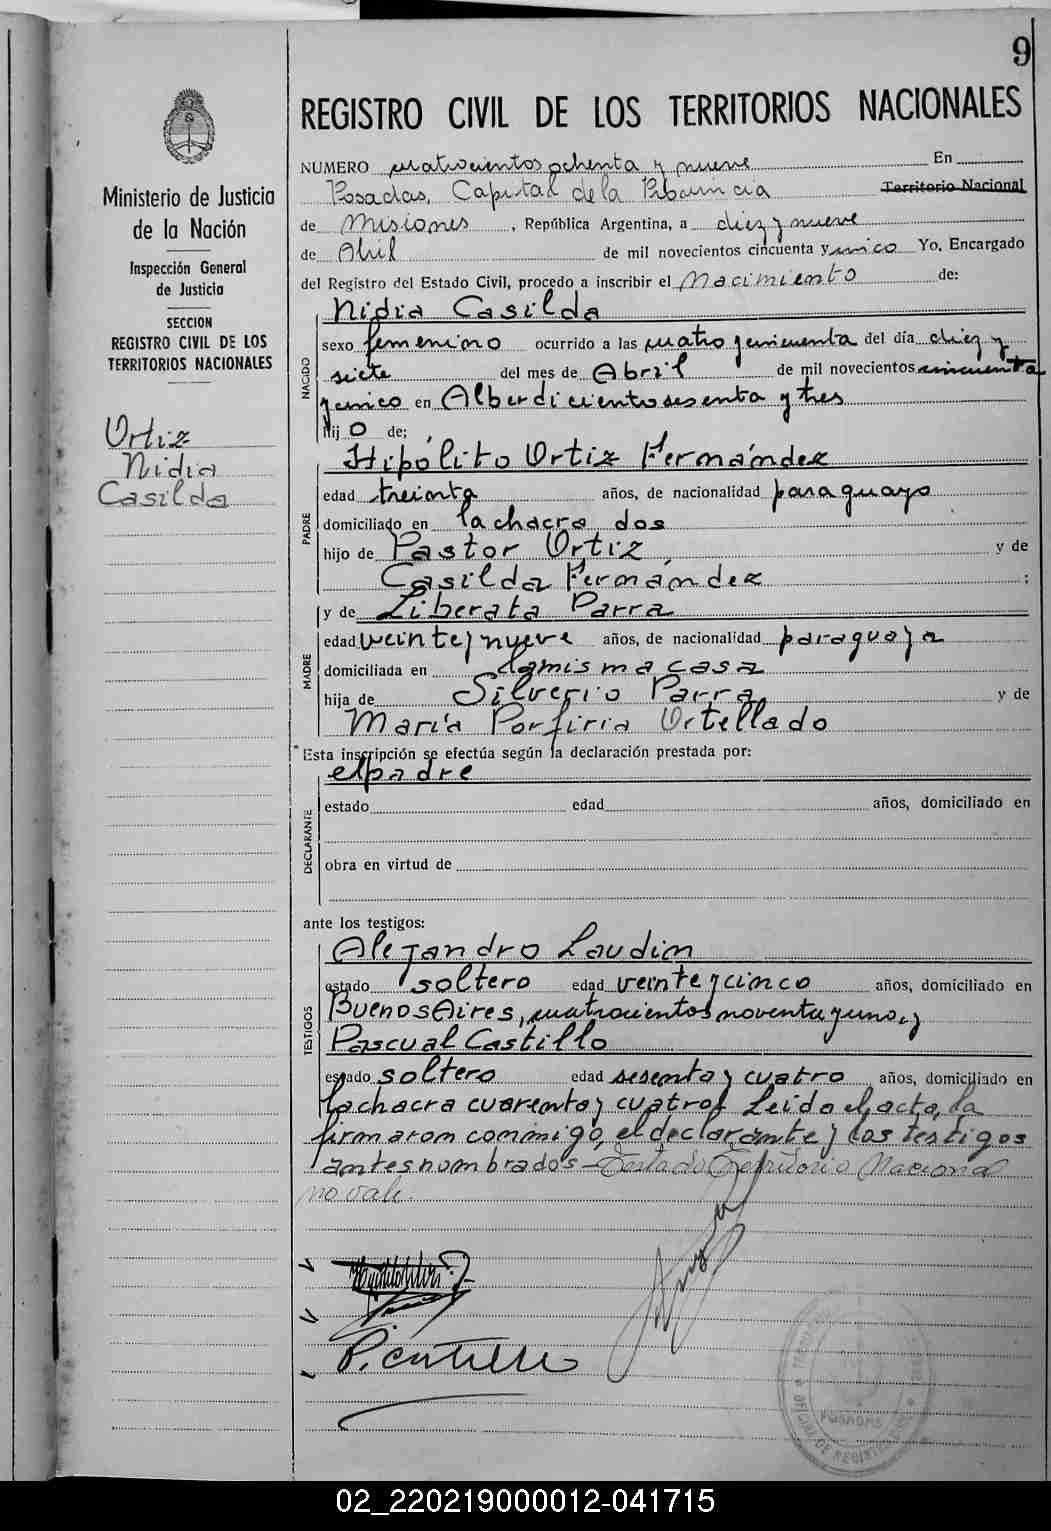 9
REGISTRO CIVIL DE LOS TERRITORIOS NACIONALES
Ministerio de Justicia
de la Nación
Inspección General
de Justicia
SECCION
REGISTRO CIVIL DE LOS
TERRITORIOS NACIONALES
Ortiz
Nidia
Casilda
NUMERO cuatrocientos ochenta y nueve En
Posadas, Capital de la Provincia Territorio Nacional
de Misiones, República Argentina, a diez y nueve
de Abril de mil novecientos cincuenta y cinco Yo, Encargado
del Registro del Estado Civil, procedo a inscribir el Nacimiento de:
Nidia Casilda
NACIDO
sexo femenino ocurrido a las cuatro y cincuenta del día diez y
siete del mes de Abril de mil novecientos cincuenta
y cinco en Alberdi ciento sesenta y tres
hijo de:
Hipólito Ortiz Fernández
PADRE
edad treinta años, de nacionalidad paraguayo
domiciliado en la chacra dos
hijo de Pastor Ortiz y de
Casilda Fernández ;
y de Liberata Parra
MADRE
edad veinte y nueve años, de nacionalidad paraguaya
domiciliada en la misma casa
hija de Silverio Parra y de
María Porfiria Ortellado
Esta inscripción se efectúa según la declaración prestada por:
el padre
DECLARANTE
estado edad años, domiciliado en
obra en virtud de
ante los testigos:
Alejandro Laudin
TESTIGOS
estado soltero edad veinte y cinco años, domiciliado en
Buenos Aires, cuatrocientos noventa y uno, y
Pascual Castillo
estado soltero edad sesenta y cuatro años, domiciliado en
la chacra cuarenta y cuatro. Leida el acta, la
firmaron conmigo, el declarante y los testigos
antes nombrados - Testado Territorio Nacional
no vale.
P. Castillo
POSADAS
02_220219000012-041715